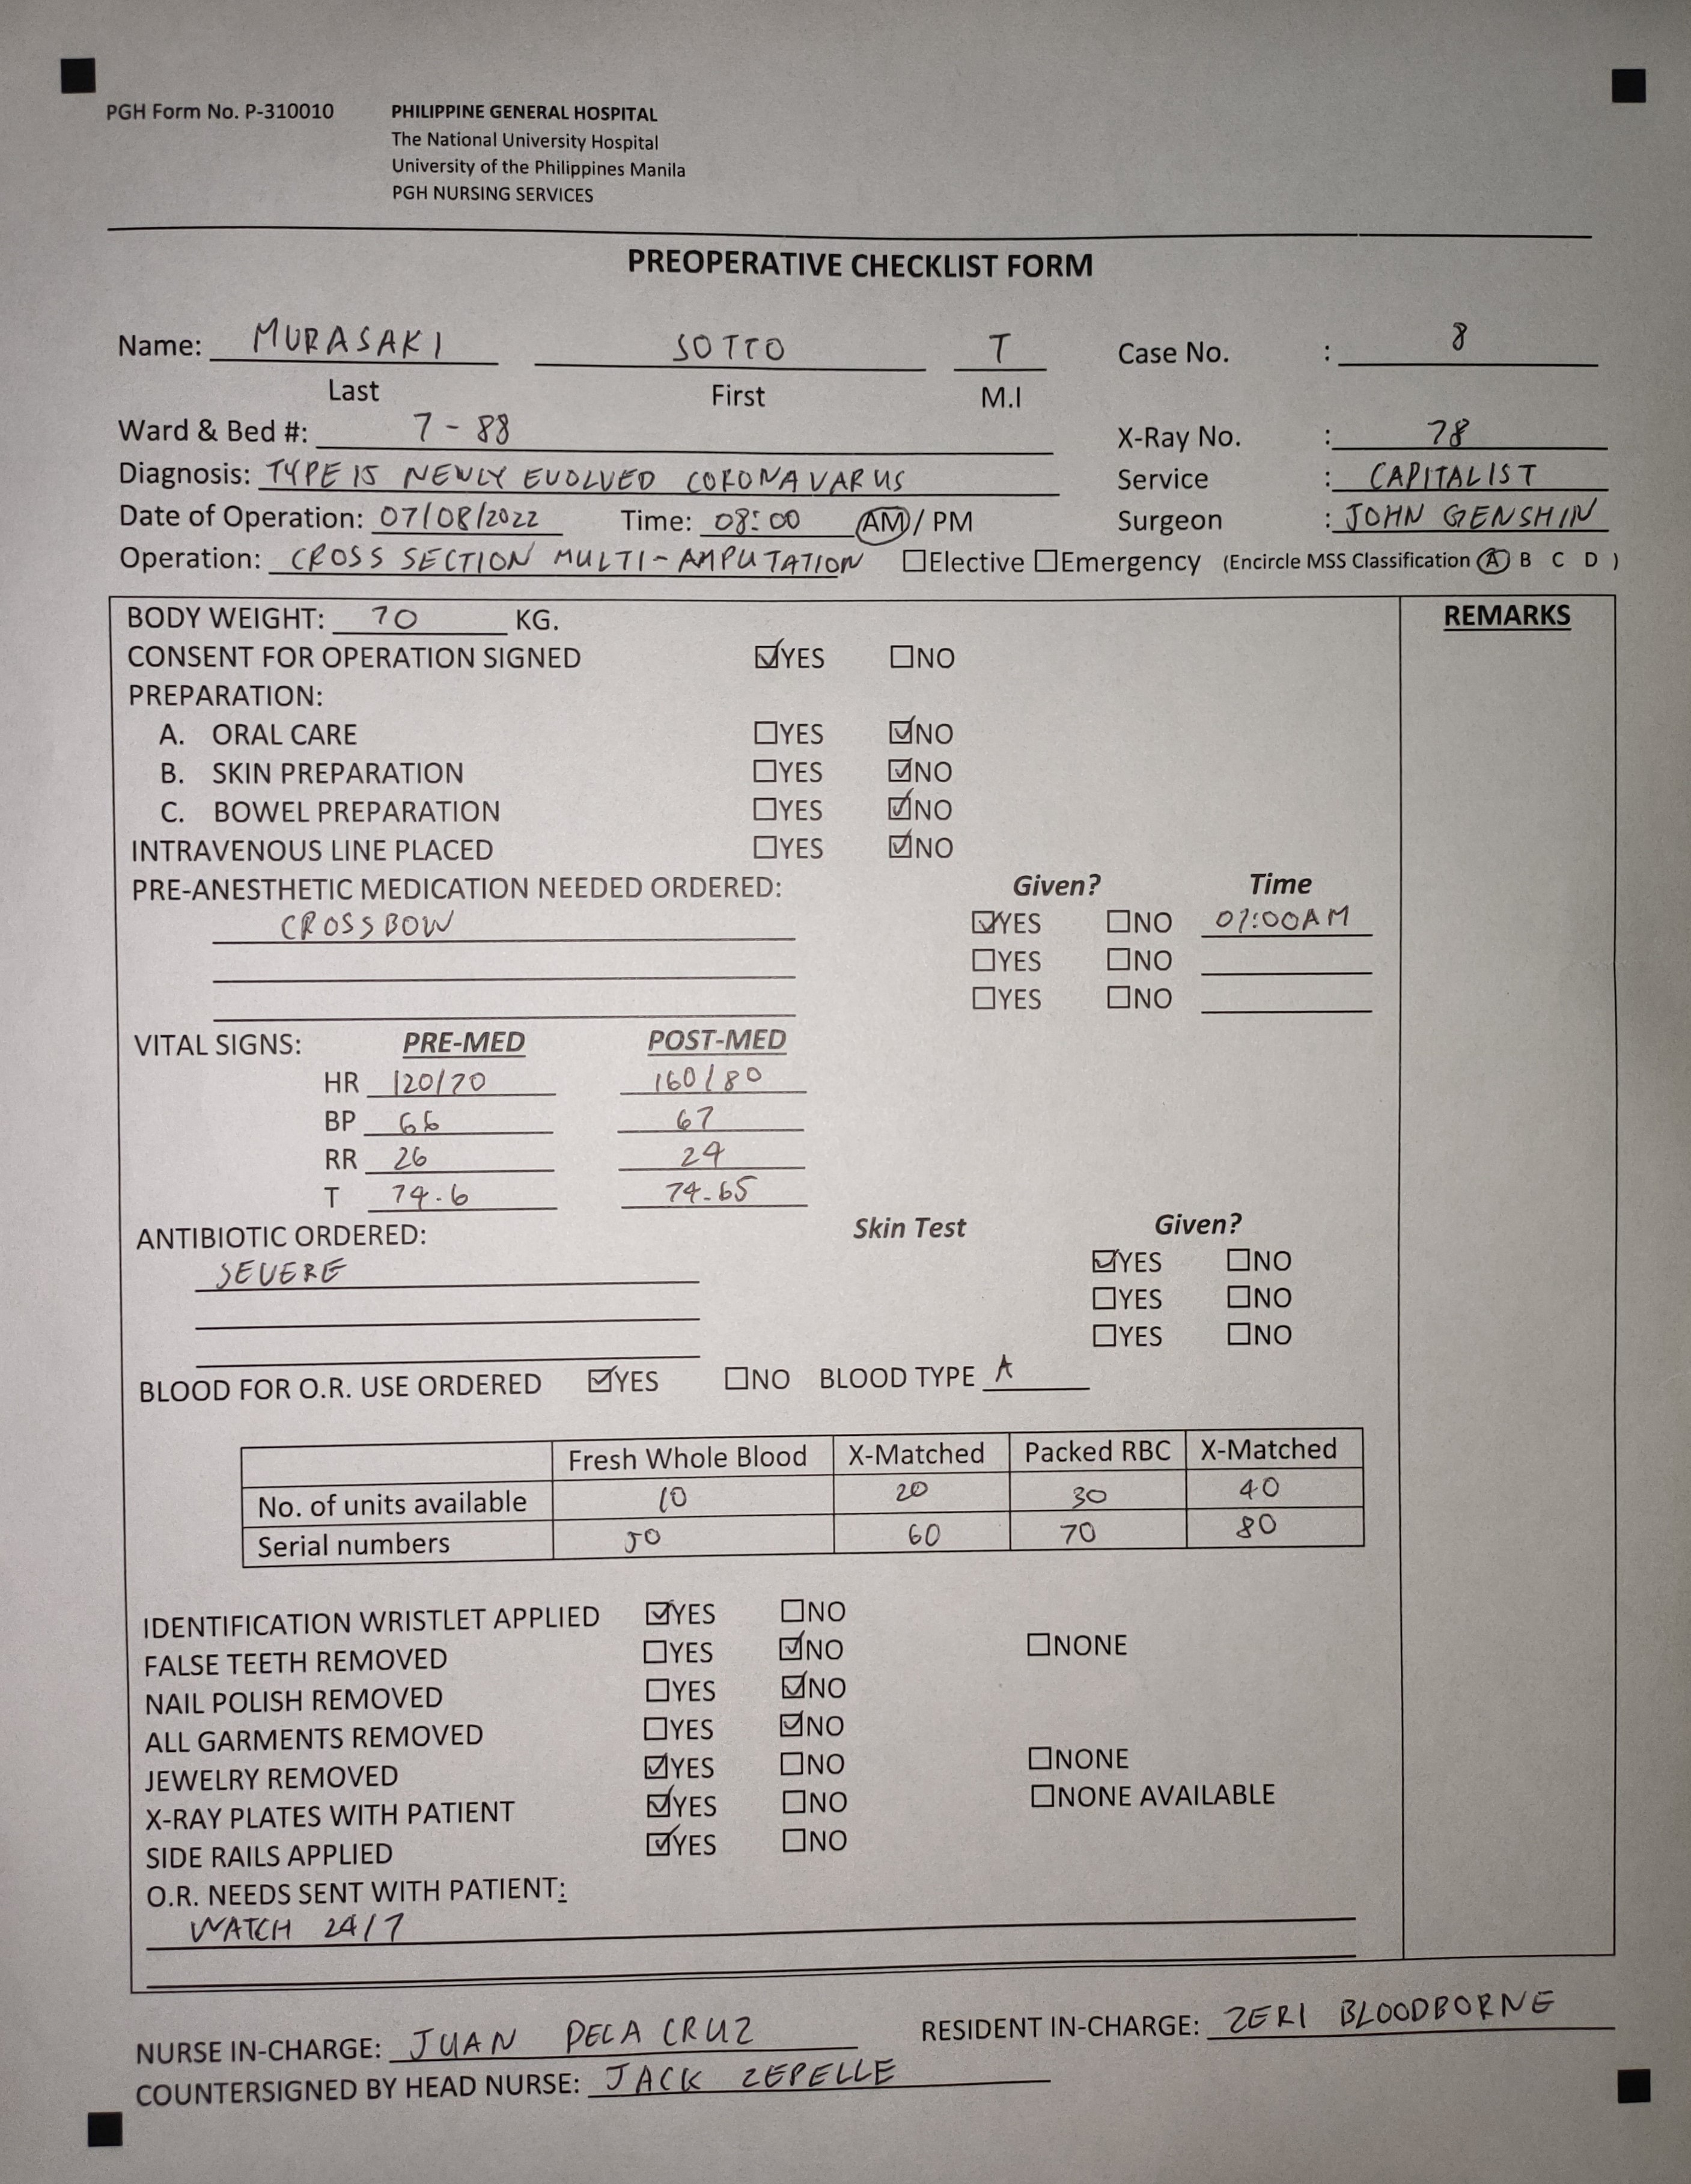 PGH Form No. P-310010 PHILIPPINE GENERAL HOSPITAL
The National University Hospital
University of the Philippines Manila
PGH NURSING SERVICES
PREOPERATIVE CHECKLIST FORM
Name: MURASAKI SOTTO T Case No. : 8
Last First M.I
Ward & Bed #: 7 - 88 X-Ray No. : 78
Diagnosis: TYPE 15 NEWLY EVOLVED CORONAVARUS Service : CAPITALIST
Date of Operation: 07/08/2022 Time: 08:00 AM / PM Surgeon : JOHN GENSHIN
Operation: CROSS SECTION MULTI-AMPUTATION ☐Elective ☐Emergency (Encircle MSS Classification A B C D )
BODY WEIGHT: 70 KG. REMARKS
CONSENT FOR OPERATION SIGNED ☑YES ☐NO
PREPARATION:
A. ORAL CARE ☐YES ☑NO
B. SKIN PREPARATION ☐YES ☑NO
C. BOWEL PREPARATION ☐YES ☑NO
INTRAVENOUS LINE PLACED ☐YES ☑NO
PRE-ANESTHETIC MEDICATION NEEDED ORDERED: Given? Time
CROSSBOW ☑YES ☐NO 07:00AM
☐YES ☐NO
☐YES ☐NO
VITAL SIGNS: PRE-MED POST-MED
HR 120/70 160/80
BP 66 67
RR 26 24
T 74.6 74.65
ANTIBIOTIC ORDERED: Skin Test Given?
SEVERE ☑YES ☐NO
☐YES ☐NO
☐YES ☐NO
BLOOD FOR O.R. USE ORDERED ☑YES ☐NO BLOOD TYPE A
Fresh Whole Blood X-Matched Packed RBC X-Matched
No. of units available 10 20 30 40
Serial numbers 50 60 70 80
IDENTIFICATION WRISTLET APPLIED ☑YES ☐NO
FALSE TEETH REMOVED ☐YES ☑NO ☐NONE
NAIL POLISH REMOVED ☐YES ☑NO
ALL GARMENTS REMOVED ☐YES ☑NO
JEWELRY REMOVED ☑YES ☐NO ☐NONE
X-RAY PLATES WITH PATIENT ☑YES ☐NO ☐NONE AVAILABLE
SIDE RAILS APPLIED ☑YES ☐NO
O.R. NEEDS SENT WITH PATIENT:
WATCH 24/7
NURSE IN-CHARGE: JUAN DELA CRUZ RESIDENT IN-CHARGE: ZERI BLOODBORNE
COUNTERSIGNED BY HEAD NURSE: JACK ZEPELLE